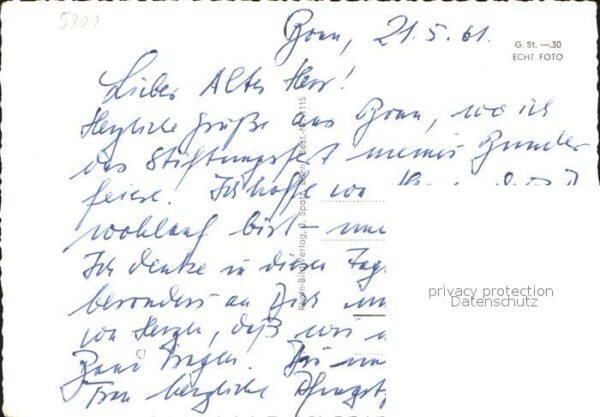 5300
Bonn, 21.5.61.
G. St. —.30
ECHT FOTO
Lieber Alter Herr!
Herzliche Grüße aus Bonn, wo ich
das Stiftungsfest meines Bundes
feiere. Ich hoffe von
wohlauf bist –
Ich denke in diesen Tag
besonders an Dich
von Herzen, daß wir
Band tragen.
herzliche Pfingst
privacy protection
Datenschutz